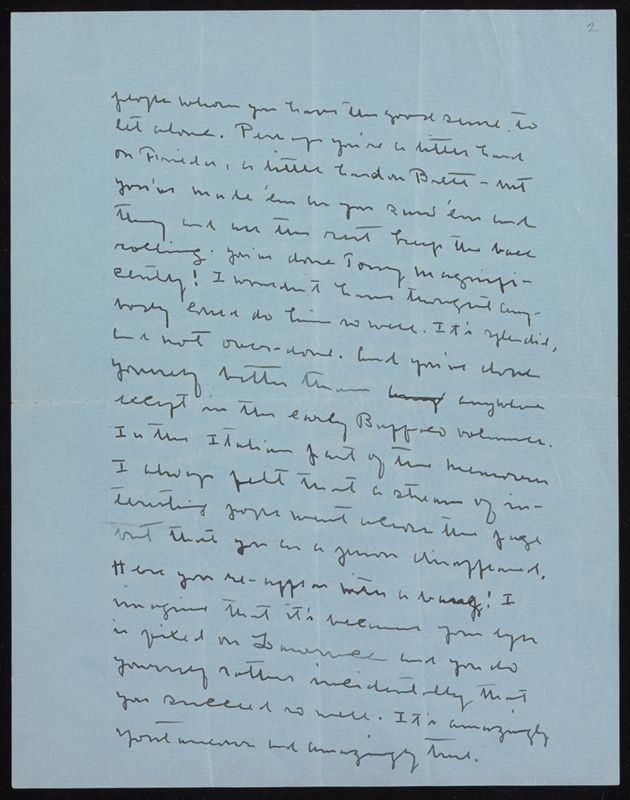 2
people whom you have the good sense to
let alone. Perhaps you're a little hard
on Frieda, a little hard on Brett - but
you've made 'em as you saw 'em and
they and all the rest keep the ball
rolling. You've done Tony magnifi-
cently! I wouldn't have thought any-
body could do him so well. It's splendid,
and not over-done. And you've done
yourself better than anywhere
except in the early Buffalo volumes.
In the Italian part of the memoirs
I always felt that a stream of in-
teresting people went across the page
but that you as a person disappeared.
Here you re-appear with a bang! I
imagine that it's because your eye
is fixed on Lawrence and you do
yourself rather incidentally that
you succeed so well. It's amazingly
spontaneous and amazingly true.